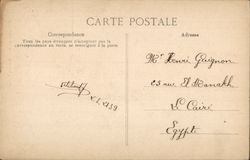 CARTE POSTALE
Correspondance
Tous les pays étrangers n'acceptent pas la
correspondance au recto, se renseigner à la poste
Adresse
Mr Henri Guignon
rue El Manakh
Le Caire
Egypte